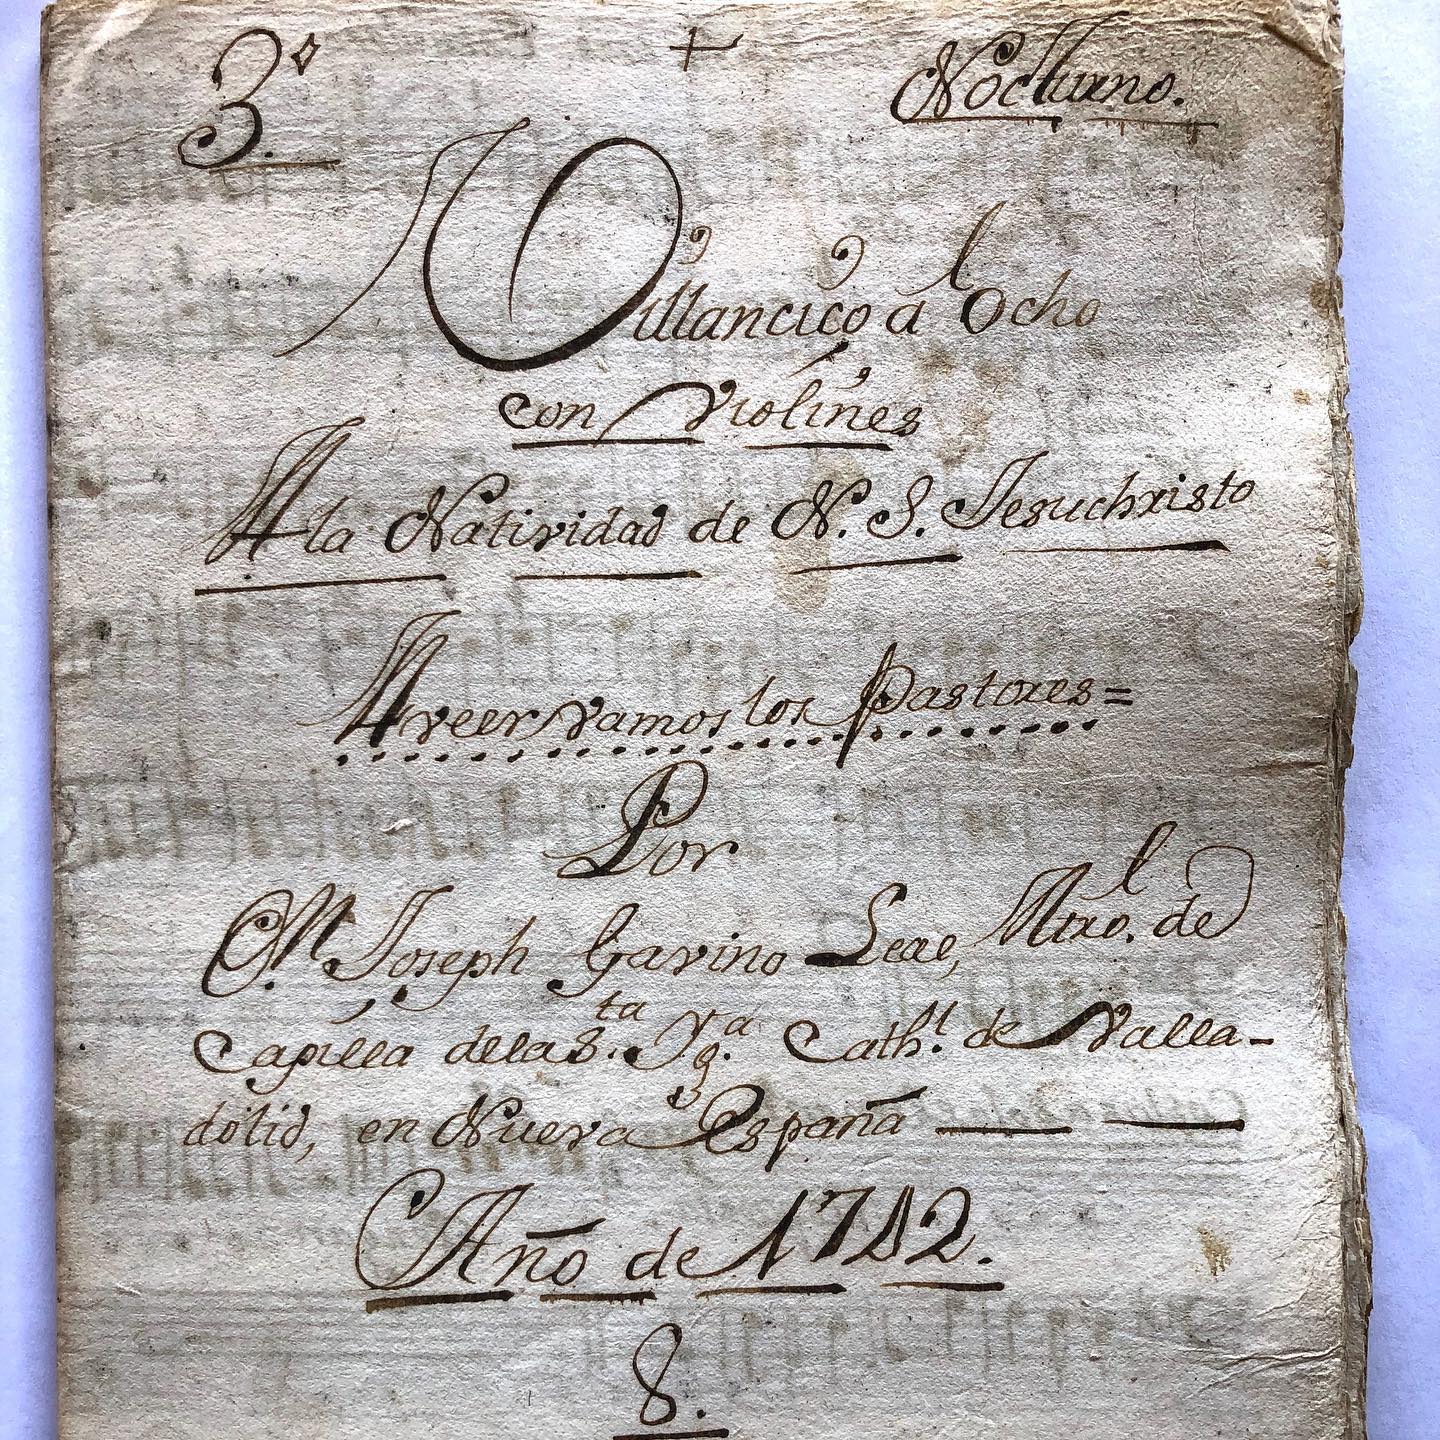 3º + Nocturno.
Villancico a Ocho
con violines
A la Natividad de N. S. Jesuchristo
A veer vamos los Pastores=
Por
M. Joseph Gavino Leal, Mro. de
Capilla de la S.ta Yg.a Cath.l de Valla-
dolid, en Nueva España
Año de 1742.
8.